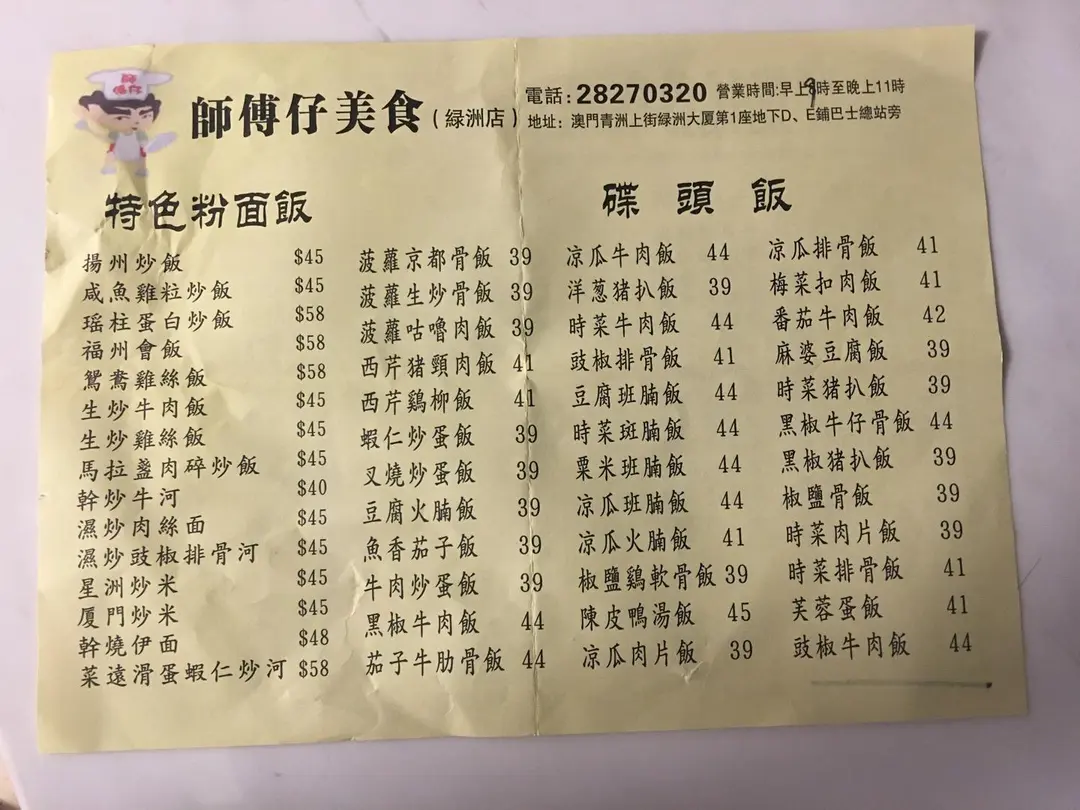 師傅仔美食（綠洲店）
電話：28270320 營業時間:早上9時至晚上11時
地址：澳門青洲上街綠洲大厦第1座地下D、E鋪巴士總站旁
特色粉面飯
揚州炒飯 $45
咸魚雞粒炒飯 $45
瑶柱蛋白炒飯 $58
福州會飯 $58
鴛鴦雞絲飯 $58
生炒牛肉飯 $45
生炒雞絲飯 $45
馬拉盞肉碎炒飯 $45
幹炒牛河 $40
濕炒肉絲面 $45
濕炒豉椒排骨河 $45
星洲炒米 $45
厦門炒米 $45
幹燒伊面 $48
菜遠滑蛋蝦仁炒河 $58
菠蘿京都骨飯 39
菠蘿生炒骨飯 39
菠蘿咕嚕肉飯 39
西芹猪頸肉飯 41
西芹鷄柳飯 41
蝦仁炒蛋飯 39
叉燒炒蛋飯 39
豆腐火腩飯 39
魚香茄子飯 39
牛肉炒蛋飯 39
黑椒牛肉飯 44
茄子牛肋骨飯 44
碟頭飯
凉瓜牛肉飯 44
洋葱猪扒飯 39
時菜牛肉飯 44
豉椒排骨飯 41
豆腐班腩飯 44
時菜斑腩飯 44
粟米班腩飯 44
凉瓜班腩飯 44
凉瓜火腩飯 41
椒鹽鷄軟骨飯 39
陳皮鴨湯飯 45
凉瓜肉片飯 39
凉瓜排骨飯 41
梅菜扣肉飯 41
番茄牛肉飯 42
麻婆豆腐飯 39
時菜猪扒飯 39
黑椒牛仔骨飯 44
黑椒猪扒飯 39
椒鹽骨飯 39
時菜肉片飯 39
時菜排骨飯 41
芙蓉蛋飯 41
豉椒牛肉飯 44